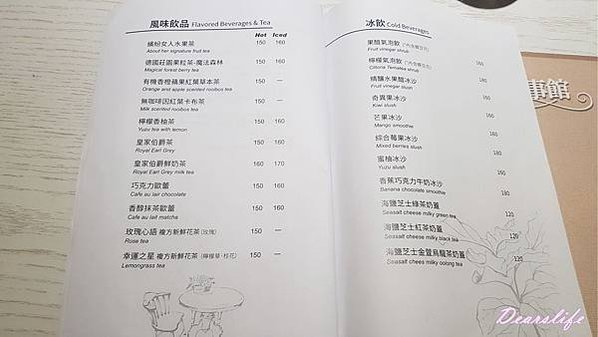 風味飲品 Flavored Beverages & Tea
Hot Iced
繽紛女人水果茶 150 160
About her signature fruit tea
德國莊園果粒茶-魔法森林 150 160
Magical forest berry tea
有機香橙蘋果紅葉草本茶 150 —
Orange and apple scented rooibos tea
無咖啡因紅葉卡布茶 150 —
Milk scented rooibos tea
檸檬香柚茶 150 160
Yuzu tea with lemon
皇家伯爵茶 150 160
Royal Earl Grey
皇家伯爵鮮奶茶 160 170
Royal Earl Grey milk tea
巧克力歐蕾 150 160
Cafe au lait chocolate
香醇抹茶歐蕾 150 160
Cafe au lait matcha
玫瑰心語 複方新鮮花茶 (玫瑰) 150 —
Rose tea
幸運之星 複方新鮮花茶 (檸檬草·桂花) 150 —
Lemongrass tea
冰飲 Cold Beverages
果醋氣泡飲
Fruit vinegar shrub
檸檬氣泡飲 160
Clitoria Ternatea shrub
繽釀水果醋冰沙 180
Fruit vinegar slush
奇異果冰沙 160
Kiwi slush
芒果冰沙 160
Mango smoothie
綜合莓果冰沙 160
Mixed berries slush
蜜柚冰沙 160
Yuzu slush
香蕉巧克力牛奶冰沙 180
Banana chocolate smoothie
海鹽芝士綠茶奶蓋 120
Seasalt cheese milky green tea
海鹽芝士紅茶奶蓋 120
Seasalt cheese milky black tea
海鹽芝士金萱烏龍茶奶蓋 120
Seasalt chees milky oolong tea
事館
Dearslife